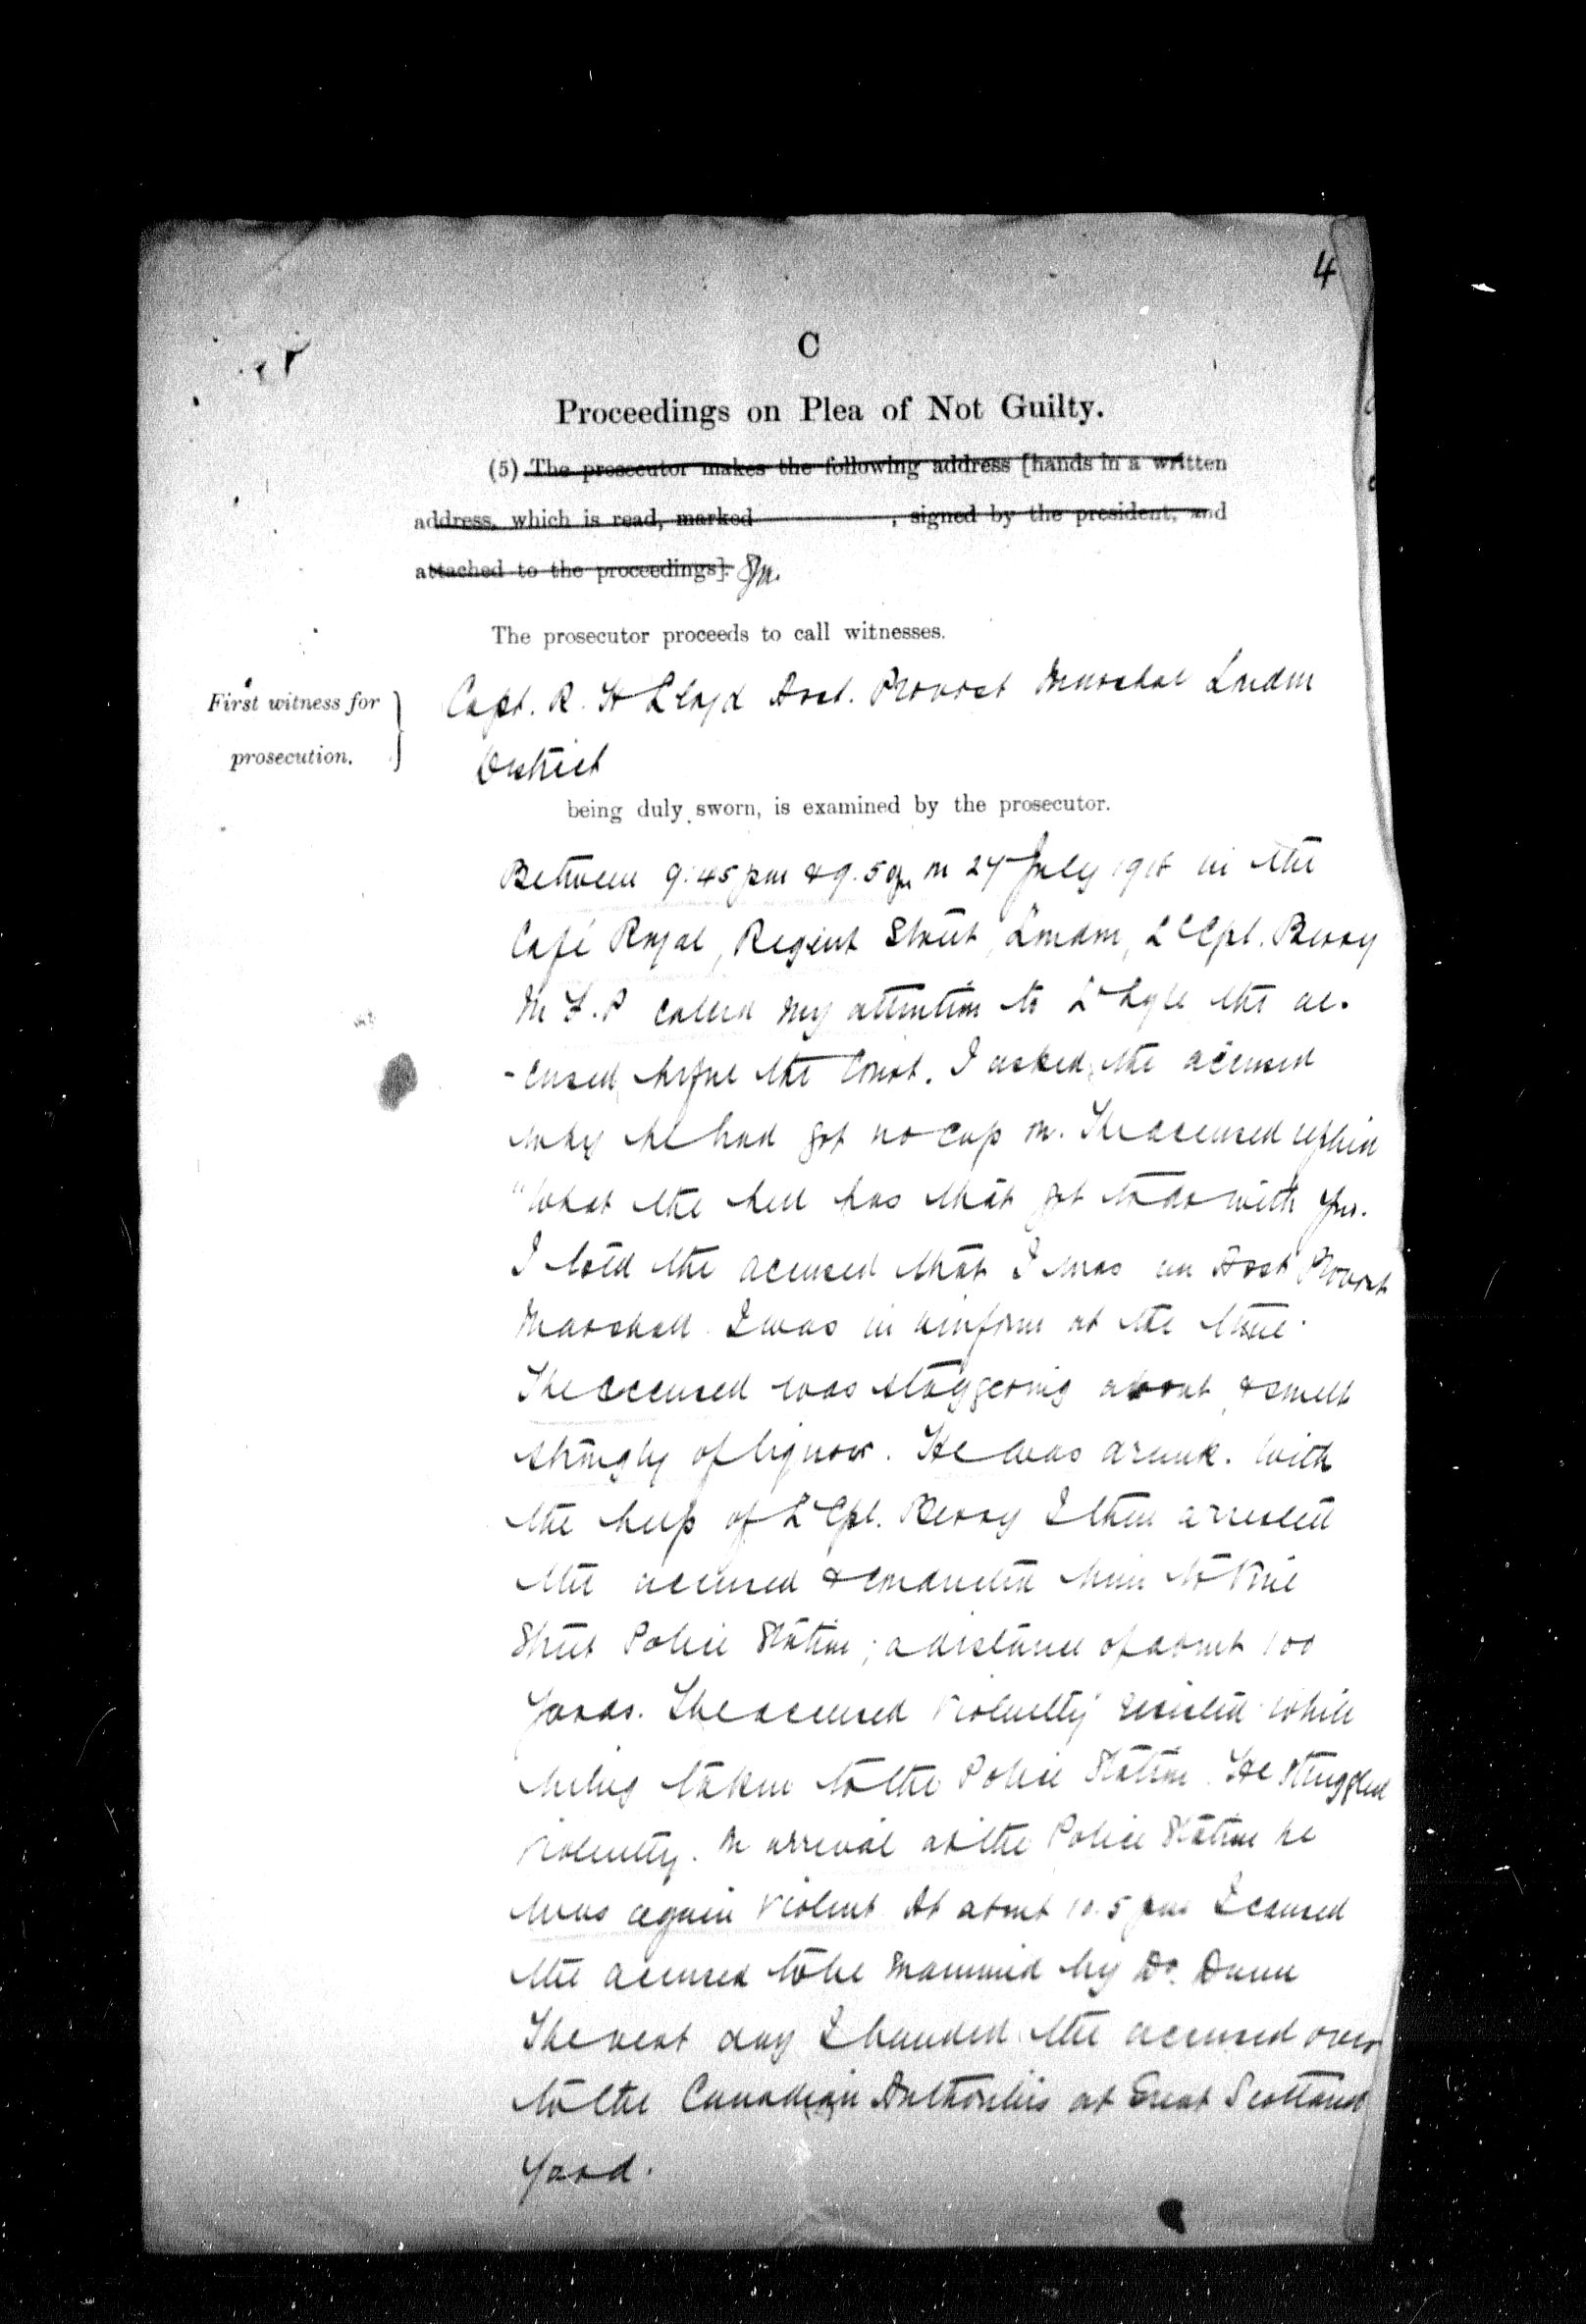 4
C
Proceedings on Plea of Not Guilty.
(5) The prosecutor makes the following address [hands in a written
address, which is read, marked , signed by the president, and
attached to the proceedings].
The prosecutor proceeds to call witnesses.
First witness for
prosecution.
Capt. R. H Lloyd Asst. Provost Marshal London
District
being duly sworn, is examined by the prosecutor.
Between 9.45 pm & 9.50 on 27 July 1918 in the
Café Royal, Regent Street, London, L Cpl. Berry
M.F.P called my attention to Lt Lyle the ac-
-cused before the Court. I asked the accused
why he had got no cap on. The accused replied
"What the hell has that got to do with you.
I told the accused that I was an Asst Provost
Marshall. I was in uniform at the time.
The accused was staggering about, & smelt
strongly of liquor. He was drunk. With
the help of L Cpl. Berry I then arrested
the accused & conducted him to Vine
Street Police Station; a distance of about 100
yards. The accused violently resisted while
being taken to the Police Station. He struggled
violently. On arrival at the Police Station he
was again violent. At about 10.5 pm I caused
the accused to be examined by Dr. Dunn
The next day I handed the accused over
to the Canadian Authorities at Great Scotland
Yard.